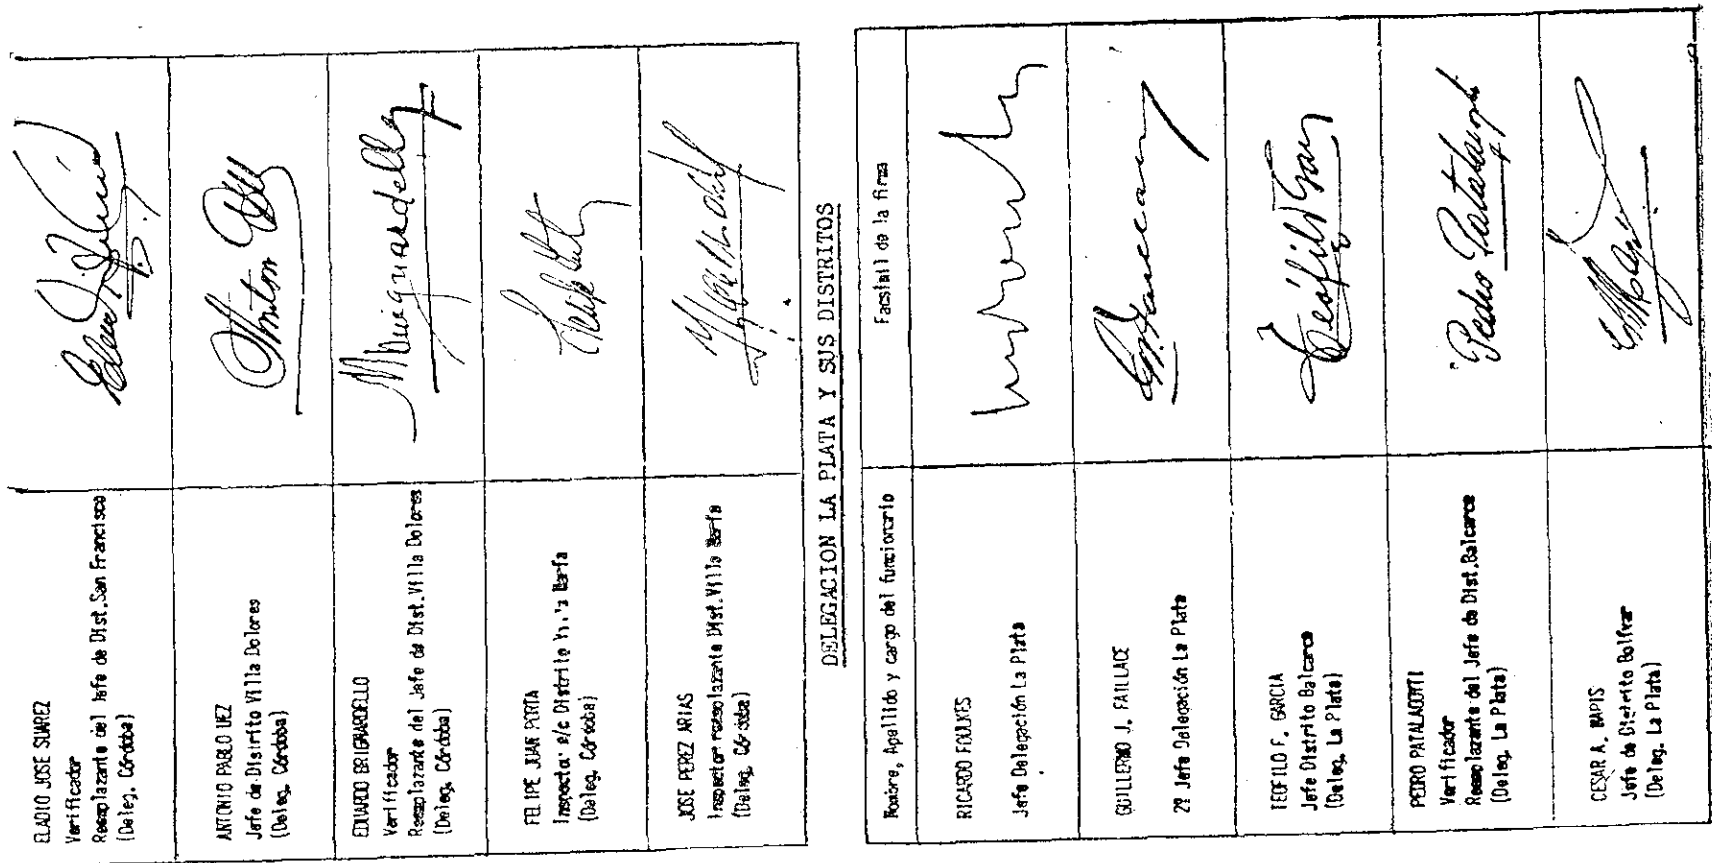 ELADIO JOSE SUAREZ
Verificador
Reemplazante del Jefe de Dist.San Francisco
(Deleg. Córdoba)
ANTONIO PABLO DIEZ
Jefe de Distrito Villa Dolores
(Deleg. Córdoba)
EDUARDO BRIGNARDELLO
Verificador
Reemplazante del Jefe de Dist.Villa Dolores
(Deleg. Córdoba)
FELIPE JUAN PORTA
Inspector a/c Distrito María
(Deleg. Córdoba)
JOSE PEREZ ARIAS
Inspector reemplazante Dist.Villa María
(Deleg. Córdoba)
DELEGACION LA PLATA Y SUS DISTRITOS
Nombre, Apellido y cargo del funcionario
Facsimil de la firma
RICARDO FOULKES
Jefe Delegación La Plata
GUILLERMO J. FAILLACE
2º Jefe Delegación La Plata
TEOFILO F. GARCIA
Jefe Distrito Balcarce
(Deleg. La Plata)
PEDRO PATALAGOITI
Pedro
Verificador
Reemplazante del Jefe de Dist.Balcarce
(Deleg. La Plata)
CESAR A. MAPIS
Jefe de Distrito Bolívar
(Deleg. La Plata)